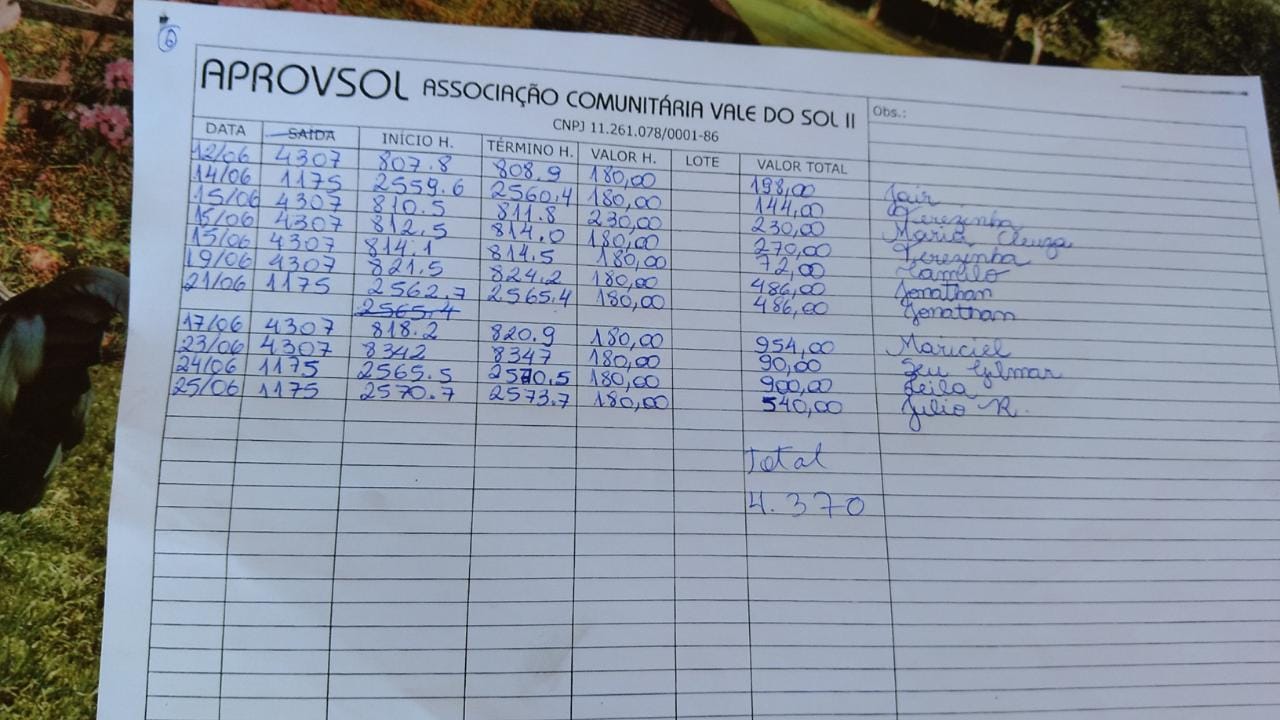 6
APROVSOL ASSOCIAÇÃO COMUNITÁRIA VALE DO SOL II
Obs.:
CNPJ 11.261.078/0001-86
DATA SAÍDA INÍCIO H. TÉRMINO H. VALOR H. LOTE VALOR TOTAL
12/06 4307 807.8 808.9 180,00 198,00 Jair
14/06 1175 2559.6 2560.4 180,00 144,00 Terezinha
15/06 4307 810.5 811.8 230,00 230,00 Maria Cleuza
15/06 4307 812.5 814.0 180,00 270,00 Terezinha
15/06 4307 814.1 814.5 180,00 72,00 Camilo
19/06 4307 821.5 824.2 180,00 486,00 Jonathan
21/06 1175 2562.7 2565.4 180,00 486,00 Jonathan
2565.4
17/06 4307 818.2 820.9 180,00 954,00 Mariciel
23/06 4307 8342 8347 180,00 90,00 Seu Gilmar
24/06 1175 2565.5 2570.5 180,00 900,00 Leila
25/06 1175 2570.7 2573.7 180,00 540,00 Julio R.
Total
4.370